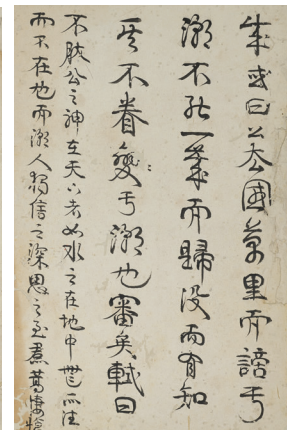 成或曰公去國萬里而謫于
潮不能一歲而歸沒而有知
其不眷戀于潮也審矣軾曰
不然公之神在天下者如水之在地中無所往
而不在也而潮人獨信之深思之至焄蒿悽愴